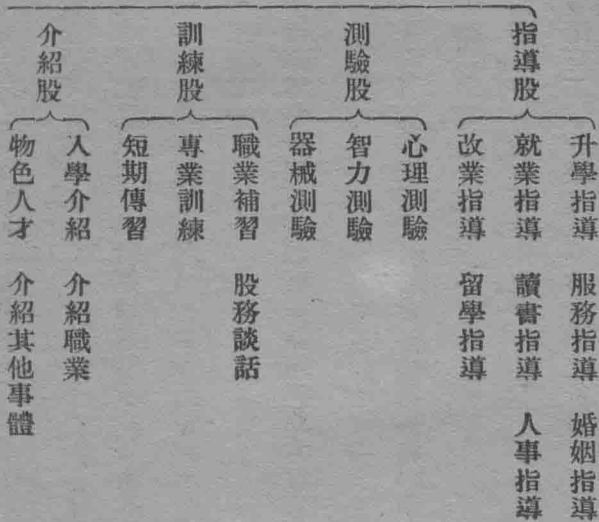 指導股
升學指導 服務指導 婚姻指導
就業指導 讀書指導 人事指導
改業指導 留學指導
測驗股
心理測驗
智力測驗
器械測驗
訓練股
職業補習 股務談話
專業訓練
短期傳習
介紹股
入學介紹 介紹職業
物色人才 介紹其他事體